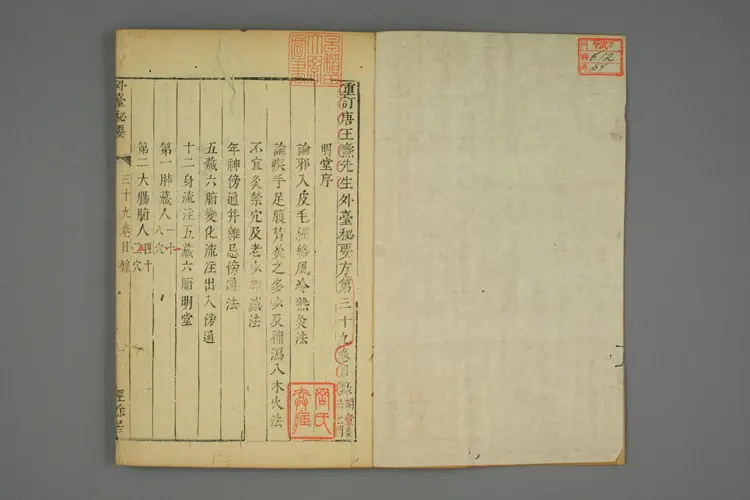 重訂唐王燾先生外臺秘要方第三十九卷目錄
明堂序
論邪入皮毛經絡風冷熱灸法
論疾手足腹背灸之多少及補瀉八木火法
不宜灸禁穴及老少加減法
年神傍通并雜忌傍通法
五藏六腑變化流注出入傍通
十二身流注五藏六腑明堂
第一肺藏人一十八穴
第二大腸腑人四十二穴
外臺秘要
三十九卷目錄
經餘居
612